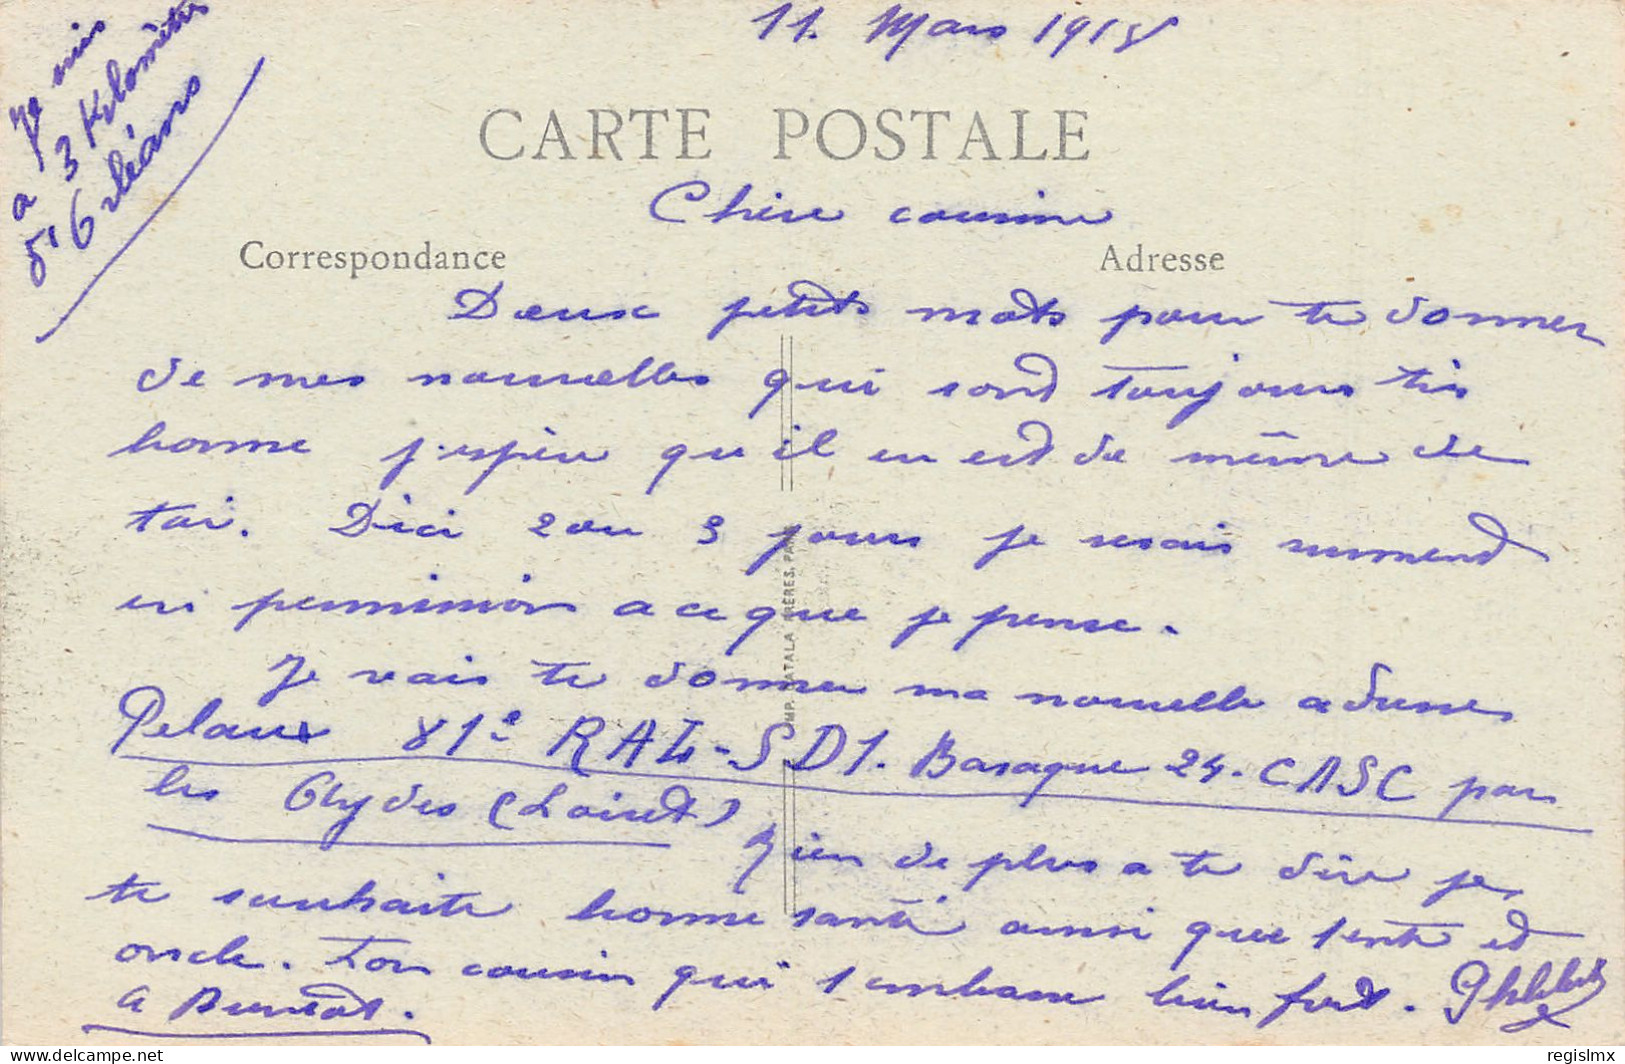 11. Mars 1918
Je suis
a 3 Kilomètres
d'Orléans
CARTE POSTALE
Chère cousine
Correspondance
Adresse
Deux petits mots pour te donner
de mes nouvelles qui sont toujours très
bonne j'espère qu'il en est de même de
toi. Dici 2 ou 3 jours je serais surement
en permission a ce que je pense.
Je vais te donner ma nouvelle adresse
Pelaux 81e RAL-SD1. Baraque 24. CASC par
les Aydes (Loiret)
Rien de plus a te dire je
te souhaite bonne santé ainsi que tente et
oncle. Ton cousin qui t'embrasse bien fort.
A Bientot.
IMP. CATALA FRÈRES, PARIS
delcampe.net
regislmx